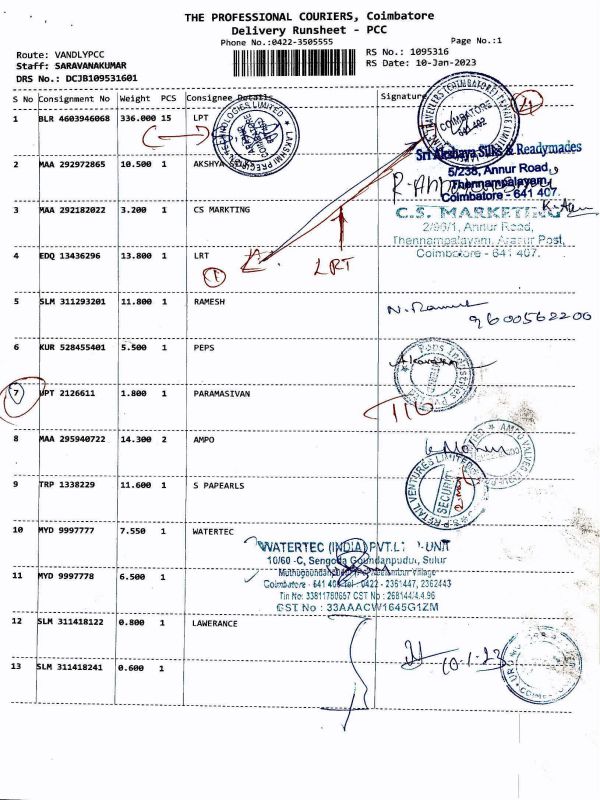 THE PROFESSIONAL COURIERS, Coimbatore
Delivery Runsheet - PCC
Phone No.:0422-3505555
Page No.:1
Route: VANDLYPCC
RS No.: 1095316
Staff: SARAVANAKUMAR
RS Date: 10-Jan-2023
DRS No.: DCJB109531601
S No Consignment No Weight PCS Consignee Details Signature
1 BLR 4603946068 336.000 15 LPT
COIMBATORE
641 402
2 MAA 292972865 10.500 1 AKSHYA
Sri Akshaya Silks & Readymades
5/238, Annur Road,
Thennampalayam,
Coimbatore - 641 407.
3 MAA 292182022 3.200 1 CS MARKTING
C.S. MARKETING
2/96/1, Annur Road,
Thennampalayam, Arasur Post,
Coimbatore - 641 407.
4 EDQ 13436296 13.800 1 LRT
LRT
5 SLM 311293201 11.800 1 RAMESH
N. Ramesh
9600562200
6 KUR 528455401 5.500 1 PEPS
7 UPT 2126611 1.800 1 PARAMASIVAN
8 MAA 295940722 14.300 2 AMPO
9 TRP 1338229 11.600 1 S PAPEARLS
SECURITY
10 MYD 9997777 7.550 1 WATERTEC
WATERTEC (INDIA) PVT. LTD -UNIT
10/60 -C, Sengoda Goundanpudur, Sulur
11 MYD 9997778 6.500 1
Coimbatore - 641 402 Tel : 0422 - 2361447, 2362443
Tin No: 33811780657 CST No : 268144/4.4.96
GST No : 33AAACW1645G1ZM
12 SLM 311418122 0.800 1 LAWERANCE
10.1.23
13 SLM 311418241 0.600 1